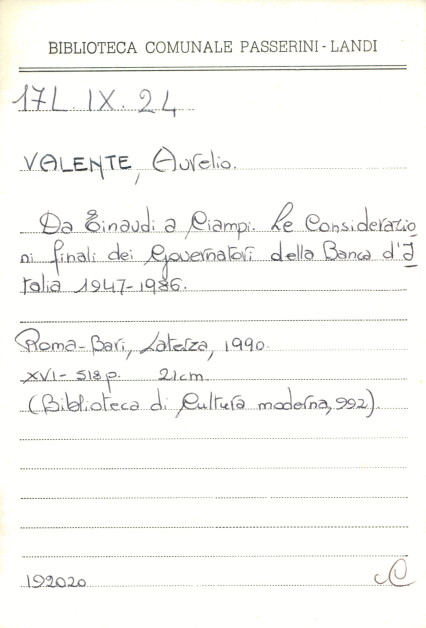 BIBLIOTECA COMUNALE PASSERINI-LANDI
17L. IX. 24
VALENTE, Aurelio.
Da Einaudi a Ciampi. Le Considerazio
ni finali dei Governatori della Banca d'I
talia 1947-1986.
Roma-Bari, Laterza, 1990.
XVI-518 p. 21cm.
(Biblioteca di Cultura moderna, 992).
192020